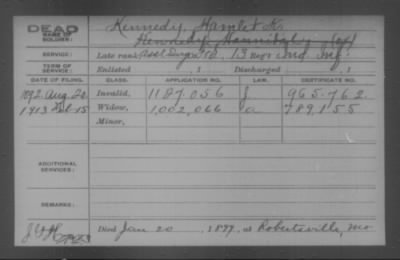 DEAD
NAME OF SOLDIER:
Kennedy, Hamlet K.
Kennedy, Hannibal
SERVICE:
Late rank, Asst Surg 13 Reg't Ind. Inf.
TERM OF SERVICE:
Enlisted , 1 Discharged , 1
DATE OF FILING. CLASS. APPLICATION NO. LAW. CERTIFICATE NO.
1892 Aug. 20 Invalid, 1187.056 J 965.762.
1913 Feb. 15 Widow, 1,002,066 a 789,155
Minor,
ADDITIONAL SERVICES:
REMARKS:
Died Jan 20, 1899, at Robertsville, Mo